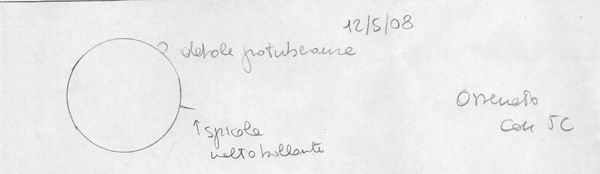 12/5/08
debole protuberanza
↑ spicola
molto brillante
Osservato
con SC